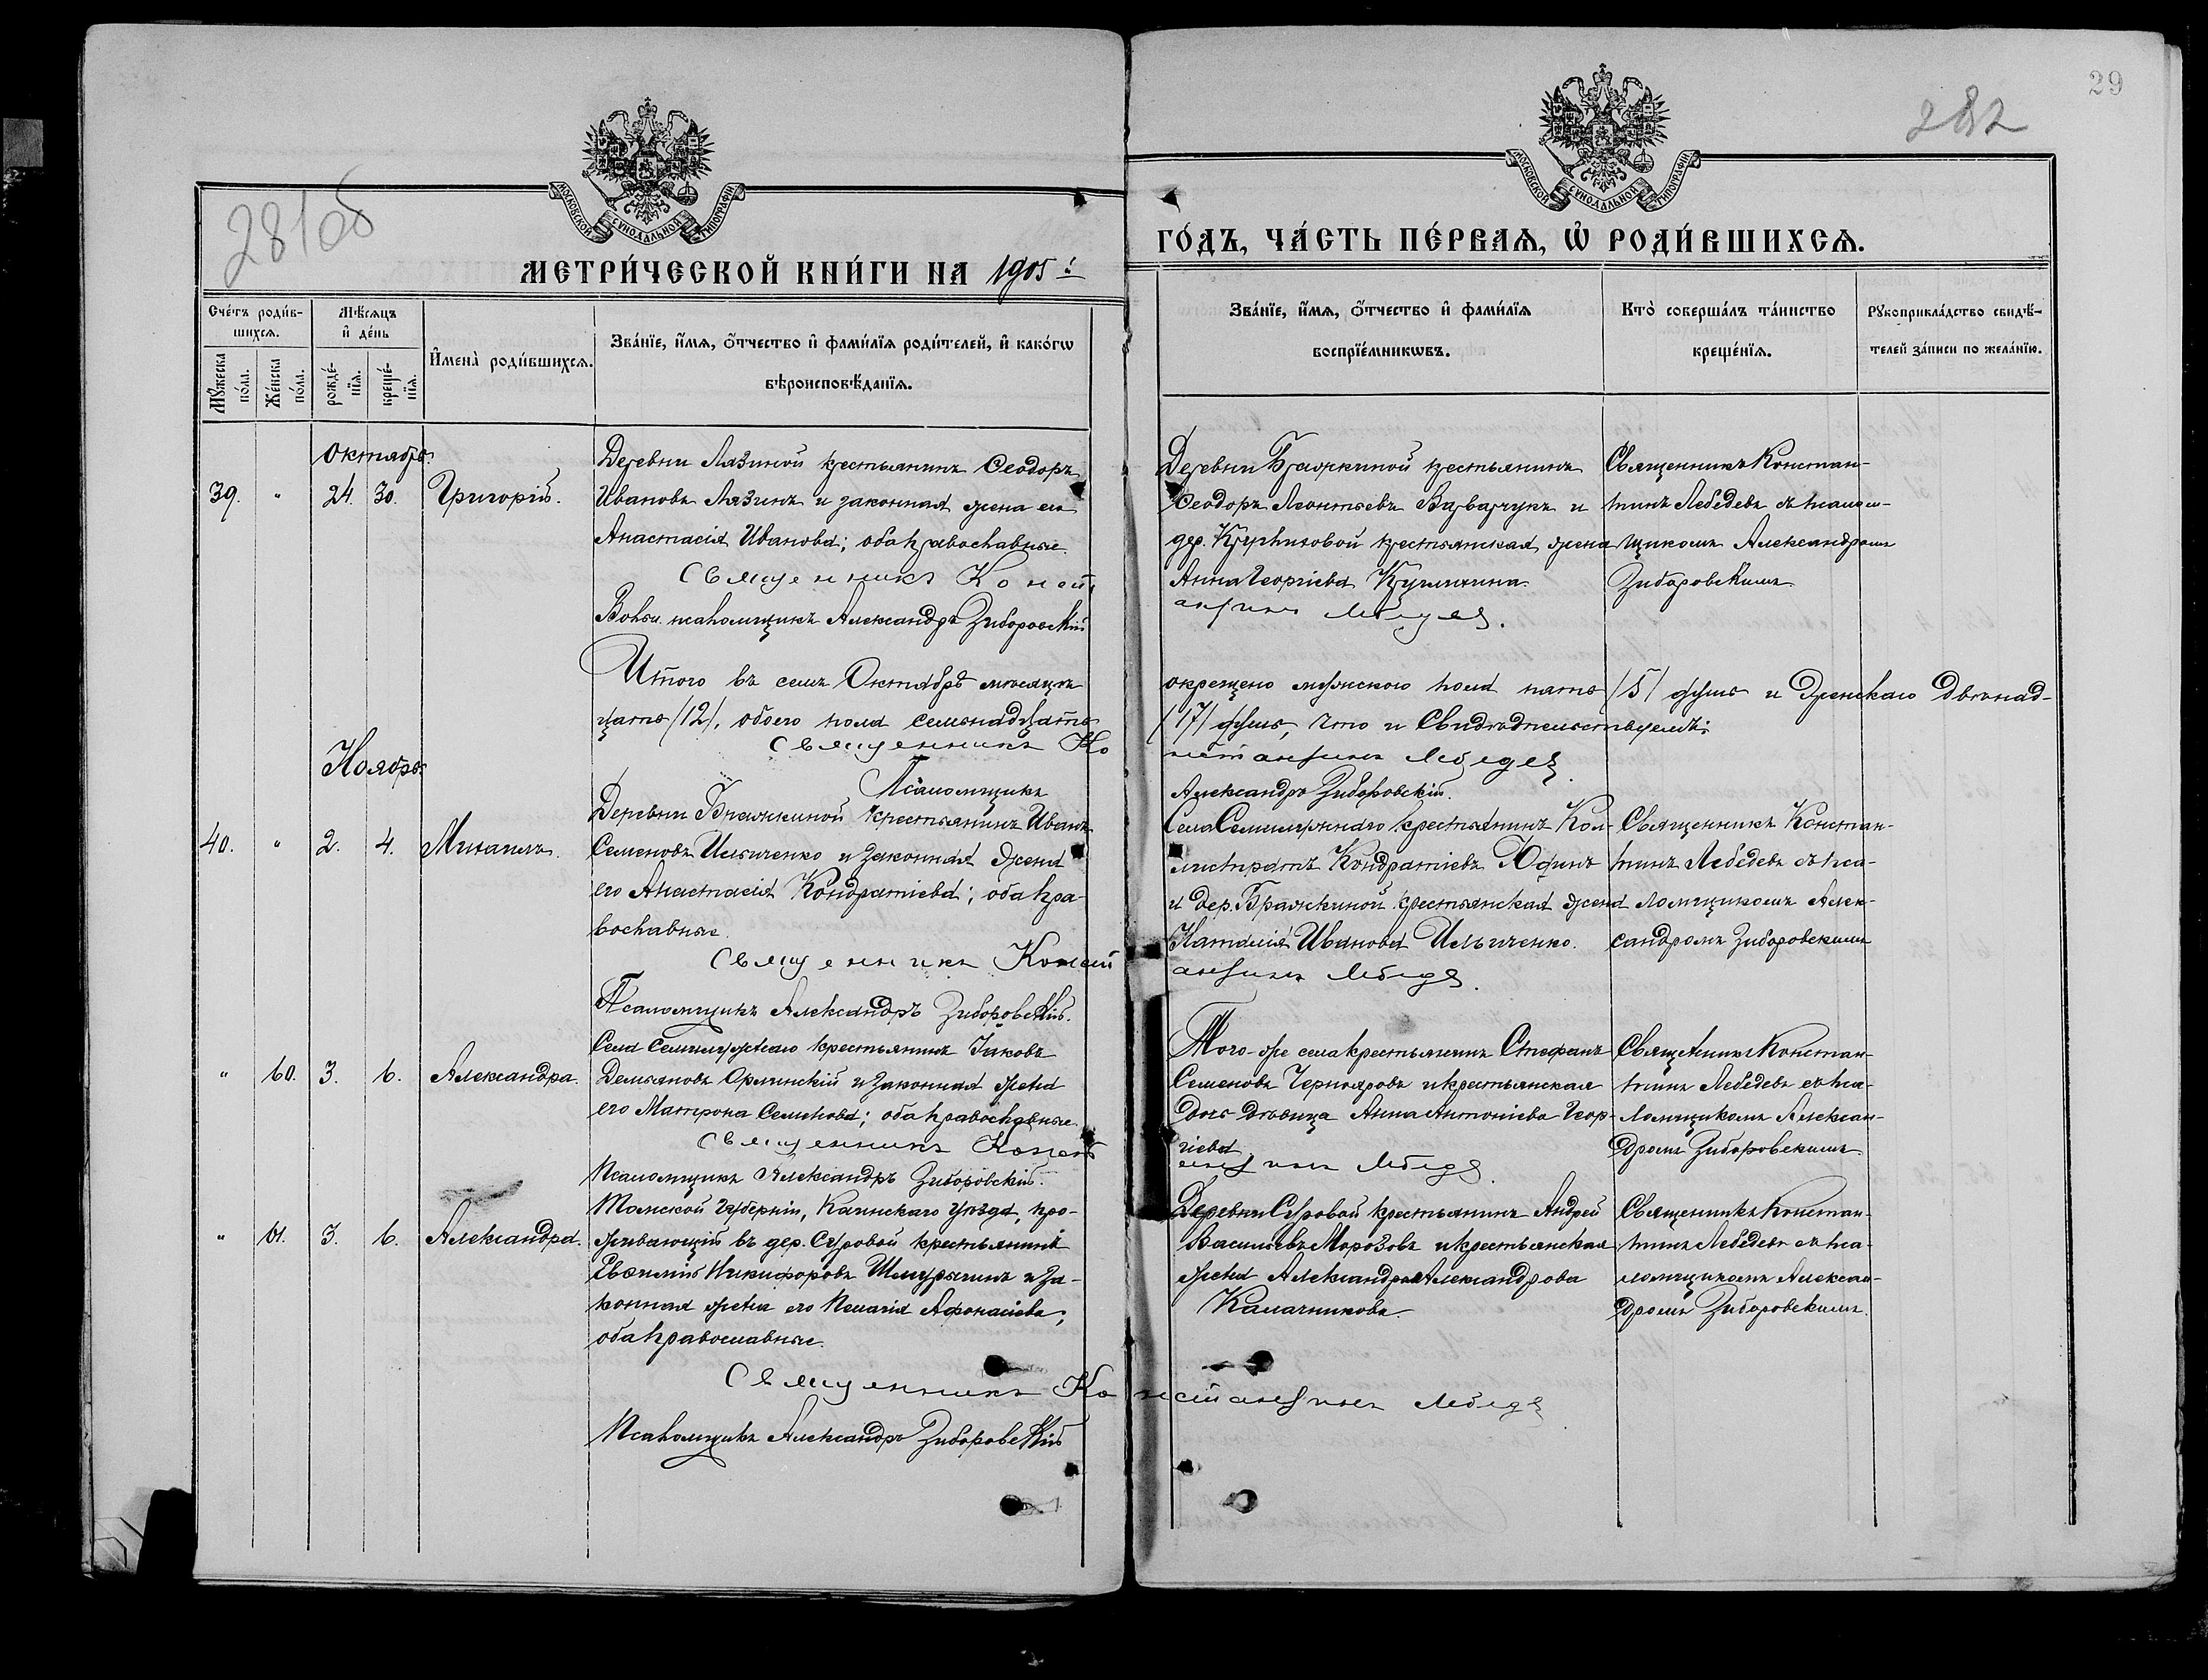 29
282
28/об
МОСКОВСКОЙ СѴНОДАЛЬНОЙ ТИПОГРАФІИ
МОСКОВСКОЙ СѴНОДАЛЬНОЙ ТИПОГРАФІИ
МЕТРИ́ЧЕСКОЙ КНИ́ГИ НА 1905 й
ГО́ДЪ, ЧА́СТЬ ПЕ́РВАѦ, Ѿ РОДИ́ВШИХСѦ.
Сче́тъ роди́в-
шихсѧ.
Мꙋ́жеска
по́ла.
Же́нска
по́ла.
Мѣ́сѧцъ
и҆ де́нь
рожде́-
нїѧ.
креще́-
нїѧ.
И҆мена̀ роди́вшихсѧ.
Зва́нїе, и҆́мѧ, ѻ҆́тчество и҆ фами́лїѧ роди́телей, и҆ како́гѡ
вѣроисповѣ́данїѧ.
Зва́нїе, и҆́мѧ, ѻ҆́тчество и҆ фами́лїѧ
воспрїе́мникѡвъ.
Кто̀ соверша́лъ та́инство
креще́нїѧ.
Рꙋкоприкла́дство свидѣ́-
телей за́писи по жела́нїю.
Октябрь.
39.
"
24.
30.
Григорій.
Деревни Лязиной крестьянинъ Ѳеодоръ
Ивановъ Лязинъ и законная жена его
Анастасія Иванова; оба православные
Священникъ Конст
Вольн. псаломщикъ Александръ Зиборовскій
Деревни Бражкиной крестьянинъ
Ѳеодоръ Леонтьевъ Варварукъ и
дер. крестьянская жена
Анна Георгіева
антинъ Лебедев.
Священникъ Констан-
тинъ Лебедевъ съ псалом-
щикомъ Александромъ
Зиборовскимъ
Итого въ семъ Октябрѣ мѣсяцѣ
окрещено мужского пола пять /5/ душъ и женскаго двѣнад-
цать /12/, обоего пола семьнадцать
/17/ душъ, что и свидѣтельствуемъ:
Священникъ Ко
нстантинъ Лебедев
Псаломщикъ
Александръ Зиборовскій.
Ноябрь
40.
"
2.
4.
Михаилъ.
Деревни Бражкиной крестьянинъ Иванъ
Семеновъ Ильиченко и законная жена
его Анастасія Кондратіева; оба пра-
вославные
Священникъ Конст
Псаломщикъ Александръ Зиборовскій.
Села Семилужнаго крестьянинъ Кал-
листратъ Кондратіевъ Юдинъ
и дер. Бражкиной крестьянская жена
Наталія Иванова Ильиченко.
антинъ Лебедев.
Священникъ Констан-
тинъ Лебедевъ съ пса-
ломщикомъ Алек-
сандромъ Зиборовскимъ
"
60.
3.
6.
Александра.
Села Семилужнаго крестьянинъ Іаковъ
Демьяновъ Орлинскій и законная жена
его Матрона Семенова; оба православные
Священникъ Конст
Псаломщикъ Александръ Зиборовскій.
Того-же села крестьянинъ Стефанъ
Семеновъ Чернояровъ и крестьянская
дочь дѣвица Анна Антоніева Геор-
гіева
антинъ Лебедев.
Священникъ Констан-
тинъ Лебедевъ съ пса-
ломщикомъ Алексан-
дромъ Зиборовскимъ
"
61.
3.
6.
Александра.
Томской Губерніи, Каинскаго уѣзда, про-
живающій въ дер. Суровой крестьянинъ
Евѳимій Никифоровъ Шмурыгинъ и за-
конная жена его Пелагія Афонасіева;
оба православные.
Деревни Суровой крестьянинъ Андрей
Васильевъ Морозовъ и крестьянская
жена Александра Александрова
Калачникова.
Священникъ Констан-
тинъ Лебедевъ съ пса-
ломщикомъ Алексан-
дромъ Зиборовскимъ.
Священникъ Константинъ Лебедев
Псаломщикъ Александръ Зиборовскій